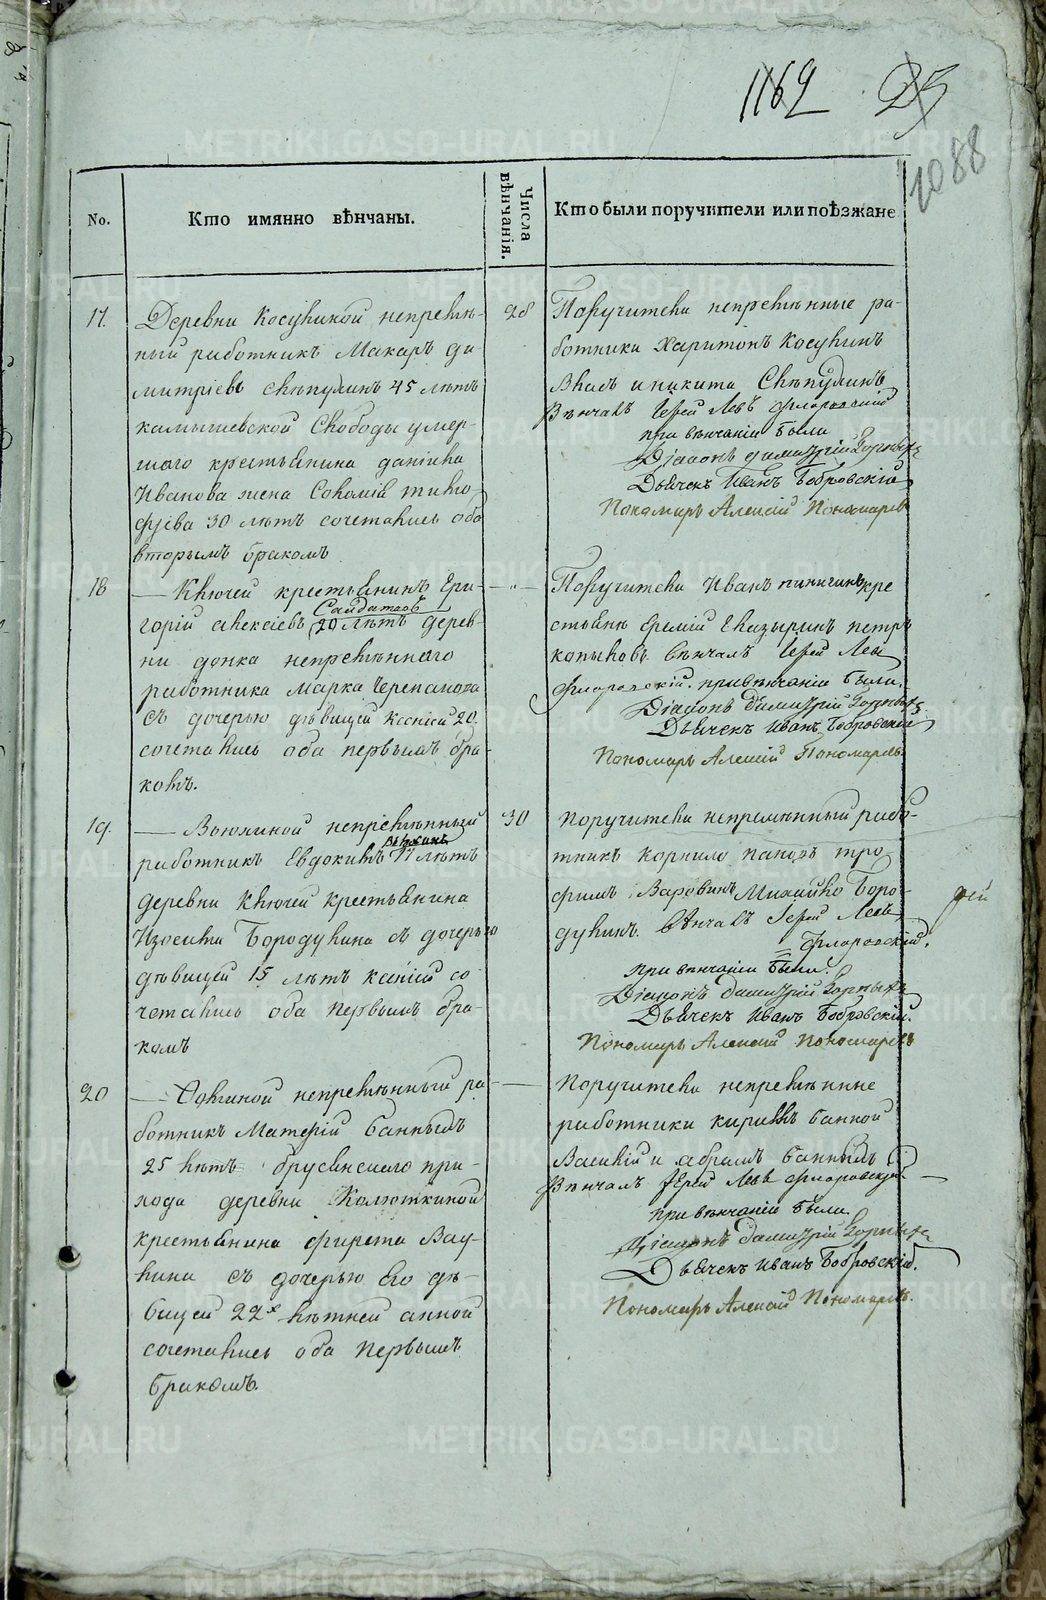 1169 25
1088
No.
Кто имянно вѣнчаны.
Числа вѣнчанія.
Кто были поручители или поѣзжане
17.
Деревни Косулиной непремѣн-
ный работникъ Макаръ ди-
митріевъ 45 лѣтъ
камышевской Слободы умер-
шаго крестьянина данила
Иванова жена Соломія тимо-
фѣева 30 лѣтъ сочетались оба
вторымъ бракомъ
28
Поручители непремѣнные ра-
ботники Харитонъ Косулинъ
Власъ и никита
Вѣнчалъ Іерей Левъ Флоровскій
при вѣнчаніи были
Діаконъ димитрій Горныхъ
Дьячекъ Иванъ Бобровскій
Пономарь Алексій Пономаревъ
18
Ключей крестьянинъ Гри-
горій алексѣевъ Солдатовъ 20 лѣтъ дерев-
ни непремѣннаго
работника Марка Черепанова
съ дочерью дѣвицей ксенией 20.
сочетались оба первымъ бра-
комъ.
Поручители Иванъ пинигинъ кре
стьяне Еремій Глазыринъ петръ
копыловъ. вѣнчалъ Іерей Левъ
Флоровскій. при вѣнчаніи были.
Діаконъ Димитрій Горныхъ
Дьячекъ Иванъ Бобровскій
Пономарь Алексій Пономаревъ
19.
непремѣнный
работникъ Евдокимъ 17 лѣтъ
деревни Ключей крестьянина
Изосима Бородулина съ дочерью
дѣвицей 15 лѣтъ ксенией со
четались оба первымъ бра-
комъ
30
Поручители непремѣнный рабо-
тникъ корнило пановъ тро-
фимъ Варовинъ Михайло Боро-
дулинъ. вѣнчалъ Іерей Левъ
Флоровскій.
при вѣнчаніи были.
Діаконъ Димитрій Горныхъ
Дьячекъ Иванъ Бобровскій.
Пономарь Алексій Пономаревъ
20
непремѣнный ра-
ботникъ Матвѣй Банныхъ
25 лѣтъ брусянскаго при-
хода деревни Колюткиной
крестьянина
съ дочерью Его дѣ-
вицей 22х лѣтней анной
сочетались оба первымъ
бракомъ.
Поручители непремѣнные
работники Банной
Василій и абрамъ банныхъ
Вѣнчалъ Іерей Левъ Флоровскій
при вѣнчаніи были.
Діаконъ Димитрій Горныхъ
Дьячекъ Иванъ Бобровскій.
Пономарь Алексій Пономаревъ.
METRIKI.GASO-URAL.RU